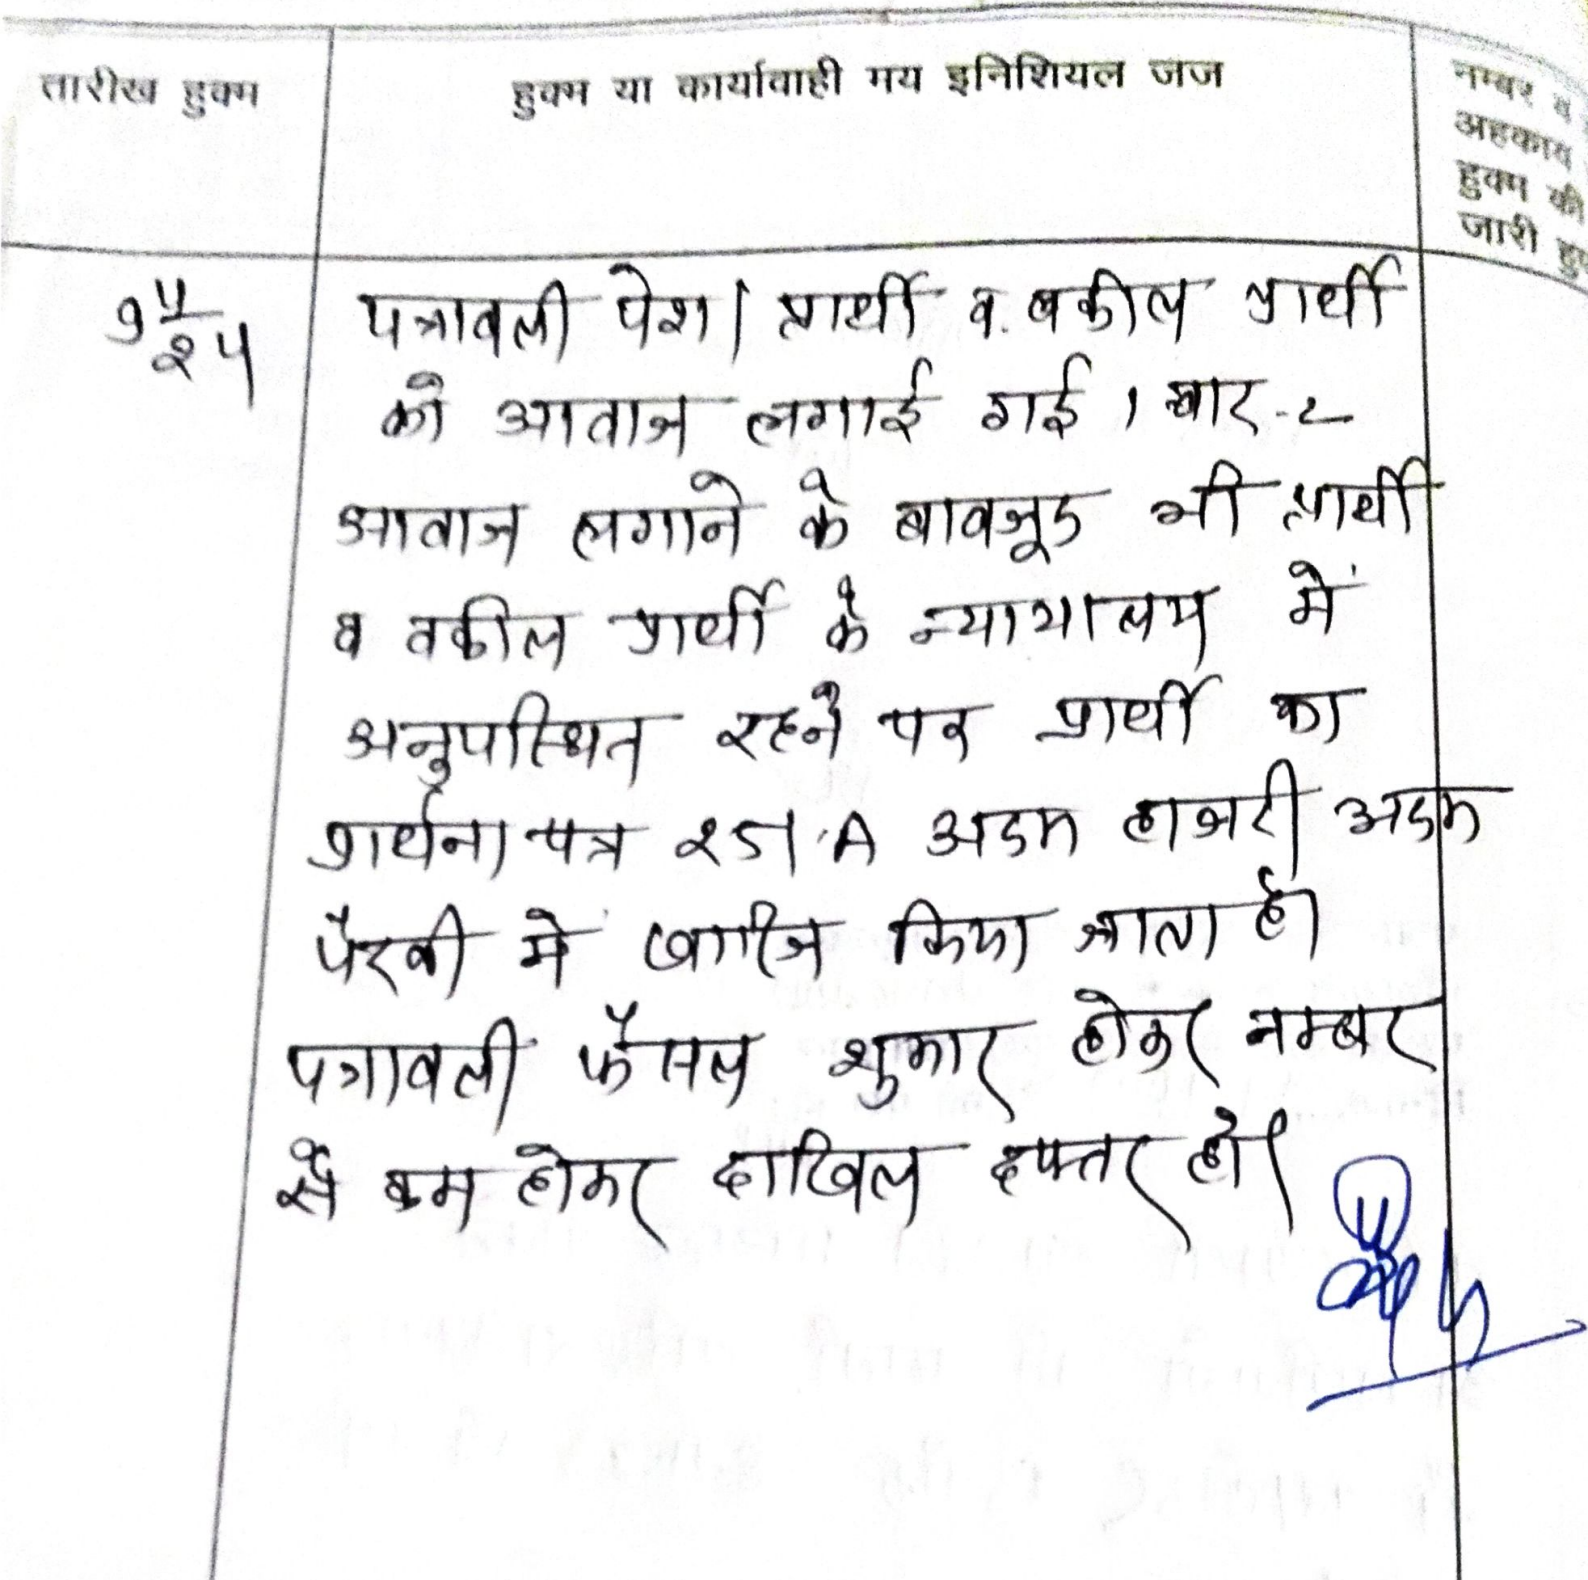 तारीख हुक्म
हुक्म या कार्यावाही मय इनिशियल जज
नम्बर व
अहकाम
हुक्म की
जारी हु
9 5/25
पत्रावली पेश। प्रार्थी व. वकील प्रार्थी
को आवाज लगाई गई। बार-2
आवाज लगाने के बावजूद भी प्रार्थी
व वकील प्रार्थी के न्यायालय में
अनुपस्थित रहने पर प्रार्थी का
प्रार्थना पत्र 251 A अदम हाजरी अदम
पैरवी में खारिज किया जाता है।
पत्रावली फैसल शुमार होकर नम्बर
से कम होकर दाखिल दफ्तर हो।